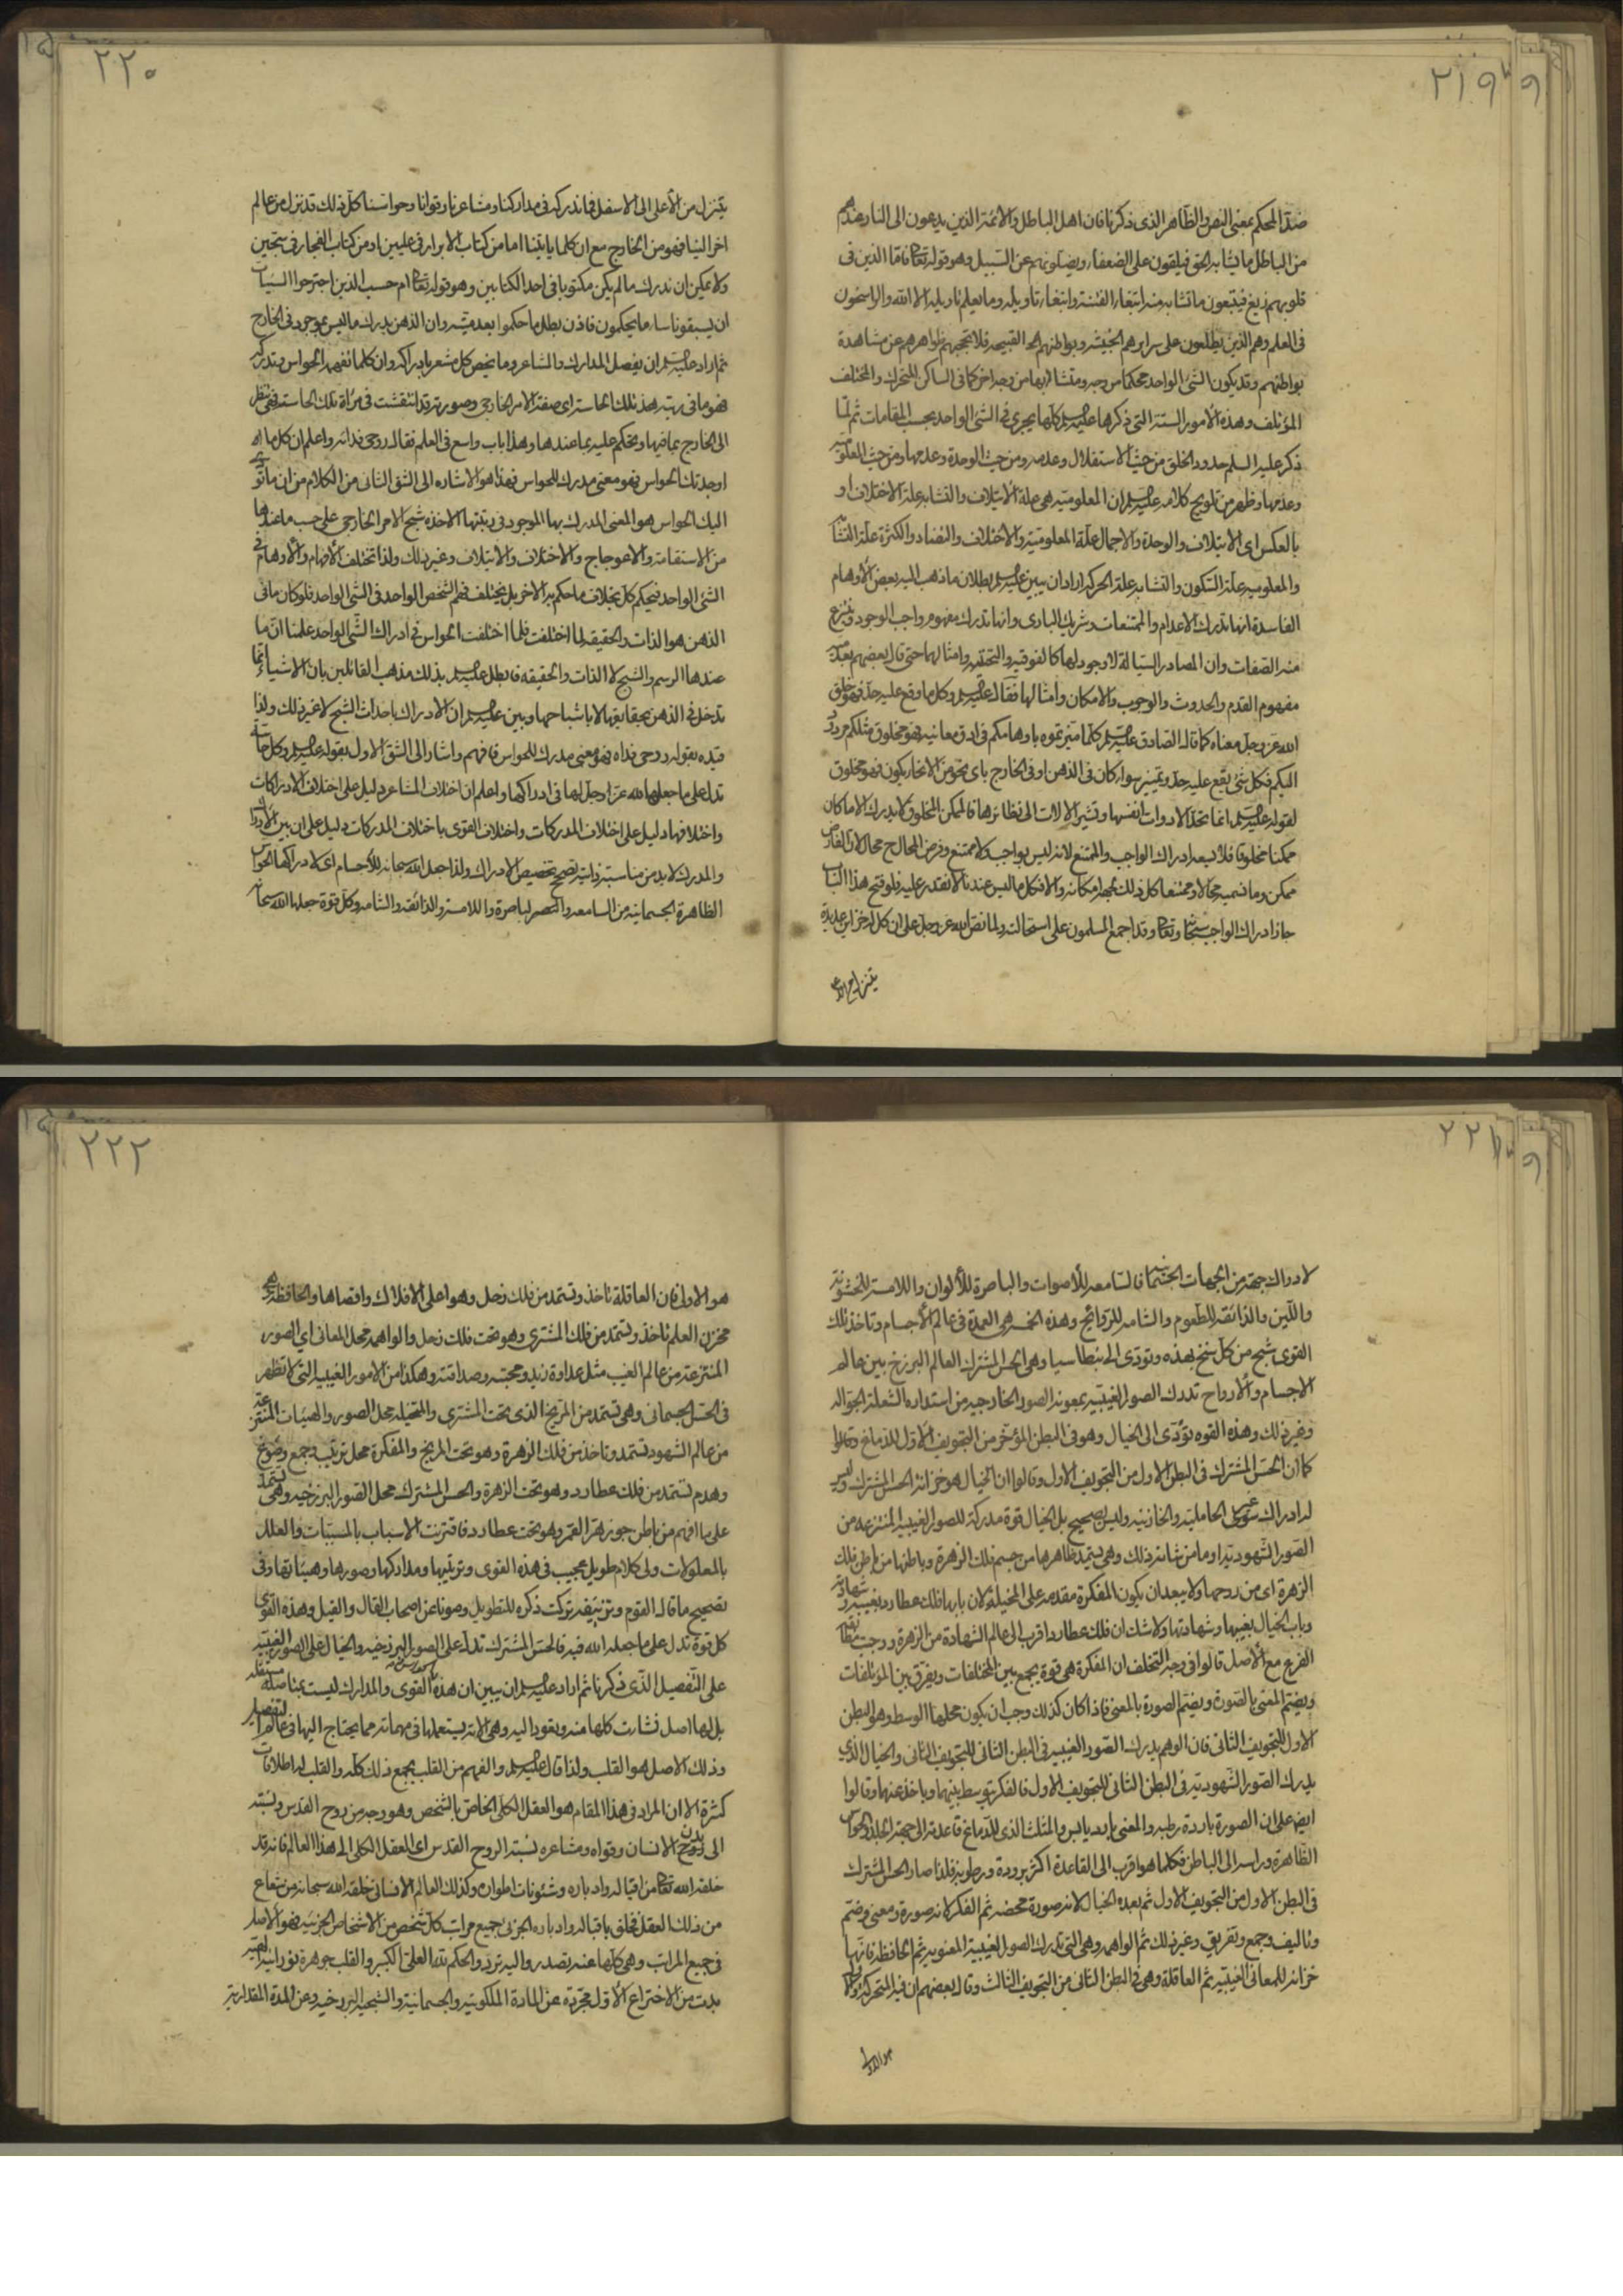 ٢١٩
ضد المحكم بمعنى النص والظاهر الذى ذكرنا فان اهل الباطل والائمة الذين يدعون الى النار عندهم
من الباطل ما يشابه الحق فيلقون على الضعفاء ويضلونهم عن السبيل وهو قوله تعالى فاما الذين فى
قلوبهم زيغ فيتبعون ما تشابه منه ابتغاء الفتنة وابتغاء تاويله وما يعلم تاويله الا الله والراسخون
فى العلم وهم الذين يطلعون على سرايرهم الخبيثه وبواطنهم القبيحه فلا تحجبهم ظواهرهم عن مشاهدة
بواطنهم وقد يكون الشئ الواحد محكما من وجه ومتشابها من وجه اخر كما فى الساكن المتحرك والمختلف
المؤتلف وهذه الامور الستة التى ذكرها عليه السلم كلها يجرى فى الشئ الواحد بحسب المقامات ثم لما
ذكر عليه السلم حدود الخلق من حيث الاستقلال وعدمه ومن حيث الوحدة وعدمها ومن حيث المعلومية
وعدمها وظهر من تلويح كلامه عليه السلم ان المعلوميه هى علة الايتلاف والتشابه علة الاختلاف او
بالعكس اى الايتلاف والوحدة والاجمال علة المعلومية والاختلاف والتضاد والكثرة علة التشابه
والمعلوميه علة السكون والتشابه علة الحركه اراد ان يبين عليه السلم بطلان ما ذهب اليه بعض الاوهام
الفاسدة انها تدرك الاعدام والممتنعات وشريك البارى وانها تدرك مفهوم واجب الوجود وينتزع
منه الصفات وان المصادر السيالة لا وجود لها كالفوقيه والتحتيه وامثالها حتى قال بعضهم بعدميه
مفهوم القدم والحدوث والوجوب والامكان وامثالها فقال عليه السلم وكل ما وقع عليه حد فهو خلق
الله عز وجل معناه كما قال الصادق عليه السلم كلما ميزتموه باوهامكم فى ادق معانيه فهو مخلوق مثلكم مردود
اليكم فكل شئ يقع عليه حد وتمييز سواء كان فى الذهن او فى الخارج باى نحو من الانحاء يكون فهو مخلوق
لقوله عليه السلم انما تحد الادوات انفسها وتشير الالات الى نظائرها فالممكن المخلوق لا يدرك الا ما كان
ممكنا مخلوقا فلا يسعه ادراك الواجب والممتنع لانه ليس بواجب كلا ممتنع وفرض المحال محال لان الفارض
ممكن وما تسميه محالا وممتنعا كل ذلك لجهة امكانه والا فكل ما ليس عندنا لا نقتدر عليه فلو فتح هذا الباب
جاز ادراك الواجب سبحانه وتعالى وقد اجمع المسلمون على استحالته ولما نص الله عز وجل على ان كل له خزائن عديدة
يتنزل من الاعلى
٢٢٠
يتنزل من الأعلى الى الاسفل فما ندركه فى مداركنا ومشاعرنا وقوانا وحواسنا كل ذلك قد نزل من عالم
اخر الينا فهو من الخارج مع ان كلما ياتينا اما من كتاب الابرار فى عليين او من كتاب الفجار فى سجين
ولا يمكن ان ندرك ما لم يكن مكتوبا فى احد الكتابين وهو قوله تعالى ام حسب الذين اجترحوا السيئات
ان يسبقونا ساء ما يحكمون فاذن بطل ما حكموا بعدميته وان الذهن يدرك ما ليس بموجود فى الخارج
ثم اراد عليه السلم ان يفصل المدارك والمشاعر وما يخص كل مشعر بادراكه وان كلما تفهمه الحواس وتدركه
فهو ما فى رتبة هذه تلك الحاسة اى صفة الامر الخارجى وصورته قد انتقشت فى مرآة تلك الحاسة فهى تنظر
الى الخارج بما فيها وتحكم عليه بما عندها وهذا باب واسع فى العلم فقال روحى فداه واعلم ان كل ما
اوجدتك الحواس فهو معنى مدرك للحواس فهذا هو الاشارة الى الشق الثانى من الكلام من ان ما تؤديه
اليك الحواس هو المعنى المدرك بها الموجود فى رتبتها الاخذة شبح الامر الخارجى على حسب ما عندها
من الاستقامة والاعوجاج والاختلاف والايتلاف وغير ذلك ولذا تختلف الأفهام والأوهام فى
الشئ الواحد فيحكم كل بخلاف ما حكم به الاخر بل يختلف فهم الشخص الواحد فى الشئ الواحد فلو كان ما فى
الذهن هو الذات والحقيقه لما اختلفت فلما اختلفت الحواس فى ادراك الشئ الواحد علمنا ان ما
عندها الرسم والشبح لا الذات والحقيقه فابطل عليه السلم بذلك مذهب القائلين بان الاشياء انما
تدخل فى الذهن بحقايقها لا باشباحها وبين عليه السلم ان الادراك باحداث الشبح لا غير ذلك ولذا
قيده بقوله روحى فداه فهو معنى مدرك للحواس فافهم واشار الى الشق الاول بقوله عليه السلم وكل حاسة
تدل على ما جعلها الله عز وجل لها فى ادراكها واعلم ان اختلاف المشاعر دليل على اختلاف الادراكات
واختلافها دليل على اختلاف المدركات واختلاف القوى باختلاف المدركات دليل على ان بين الادراك
والمدرك لا بد من مناسبة ذاتيه تصحح تخصيص الادراك ولذا جعل الله سبحانه للأجسام اى لادراكها الحواس
الظاهرة الجسمانيه من السامعه والباصرة واللامسة والذائقه والشامه وكل قوة جعلها الله سبحانه
٢٢١
لادراك جهة من الجهات الجسمانية فالسامعه للأصوات والباصرة للألوان واللامسة للخشونة
واللين والذائقه للطعوم والشامه للروائح وهذه الخمس هى العمدة فى عالم الأجسام وتاخذ تلك
القوى شبح من كل سنخ بهذه وتودى الى بنطاسيا وهى الحس المشترك العالم البرزخ بين عالم
الاجسام والأرواح تدرك الصور الغيبيه بمعونة الصور الخارجيه من استداره الشعلة الجواله
وغير ذلك وهذه القوه تؤدى الى الخيال وهو فى البطن المؤخر من التجويف الاول للدماغ وقالوا
كما ان الحس المشترك فى البطن الاول من التجويف الاول وقالوا ان الخيال هو خزانة الحس المشترك وليس
له ادراك سوى الحاملية والخازنيه وليس بصحيح بل الخيال قوة مدركة للصور الغيبيه المنتزعه من
الصور الشهوديه او ما من شانه ذلك وهى يستمد ظاهرها من جسم فلك الزهرة وباطنها من باطن فلك
الزهرة اى من روحها ولا يبعد ان يكون المفكرة مقدمه على المخيلة لان بابها فلك عطارد بغيبه وشهادته
وباب الخيال بغيبها وشهادتها ولا شك ان فلك عطارد اقرب الى عالم الشهادة من الزهرة ووجب تطابق
الفرع مع الأصل قالوا فى وجه التخلف ان المفكرة هى قوة يجمع بين المختلفات ويفرق بين المؤتلفات
ويضم المعنى بالصورة ويضم الصورة بالمعنى فاذا كان كذلك وجب ان يكون محلها الوسط وهو البطن
الاول للتجويف الثانى فان الوهم يدرك الصور الغيبيه فى البطن الثانى للتجويف الثانى والخيال الذى
يدرك الصور الشهوديه فى البطن الثانى للتجويف الاول فالفكر يتوسط بينهما وياخذ عنهما وقالوا
ايض على ان الصورة باردة رطبه والمعنى بارد يابس والمثلث الذى للدماغ قاعدته الى جهة الجلد والحواس
الظاهرة وراسه الى الباطن فكلما هو اقرب الى القاعدة اكثر برودة ورطوبة فلذا صار الحس المشترك
فى البطن الاول من التجويف الاول ثم بعده الخيال لانه صورة محضه ثم الفكر لانه صورة ومعنى وضم
وتاليف وجمع وتفريق وغير ذلك ثم الواهمه وهى التى تدرك الصور الغيبية المعنويه ثم الحافظه فانها
خزانه للمعانى الغيبيه ثم العاقلة وهى فى البطن الثانى من التجويف الثالث وقال بعضهم ان فيه المتحركة
هو الاول
٢٢٢
هو الاولى فان العاقلة تاخذ وتستمد من فلك زحل وهو اعلى الافلاك واقصاها والحافظه هى
مخزن العلم تاخذ وتستمد من فلك المشترى وهو تحت فلك زحل والواهمه محل المعانى اى الصور
المنتزعة من عالم الغيب مثل عداوة زيد ومحبته وصداقته وهكذا من الامور الغيبيه التى لا تظهر
فى الحس الجسمانى وهى تستمد من المريخ الذى تحت المشترى والمتخيله محل الصور والهيئات المنتزعة
من عالم الشهود تستمد وتاخذ من فلك الزهرة وهو تحت المريخ والمفكرة محل ترتيب وجمع وصوغ
وهدم تستمد من فلك عطارد وهو تحت الزهرة والحس المشترك محل الصور البرزخيه وهى تستمد
على ما افهم من باطن جوزهر القمر وهو تحت عطارد فاقترنت الاسباب بالمسببات والعلل
بالمعلولات ولى كلام طويل عجيب فى هذه القوى وترتيبها ومداركها وصورها وهيئاتها وفى
تصحيح ما قاله القوم وتزييفه تركت ذكره للتطويل وصونا عن اصحاب القال والقيل وهذه القوى
كل قوة تدل على ما جعله الله فيه فالحس المشترك تدل على الصور البرزخيه والخيال على الصور الغيبيه
على التفصيل الذى ذكرنا ثم اراد عليه السلم ان يبين ان هذه القوى والمدارك ليست بمتاصله مستقله
بل لها اصل نشات كلها منه ويعود اليه وهى الاته يستعملها فى مهماته مما يحتاج اليها فى عالم التفصيل
وذلك الاصل هو القلب ولذا قال عليه السلم والفهم من القلب يجمع ذلك كله والقلب له اطلاقات
كثيرة الا ان المراد فى هذا المقام هو العقل الكلى الخاص بالشخص وهو وجه من روح القدس ونسبته
الى بدن الانسان وقواه ومشاعره نسبة الروح القدس اى العقل الكلى الى هذا العالم فانه قد
خلقه الله تعالى من اقباله وادباره وشئونات اطواره وكذلك العالم الانسانى خلقه الله سبحانه من شعاع
من ذلك العقل فخلق باقباله وادباره الجزئى جميع مراتب كل شخص من الاشخاص الجزئيه فهو الاصل
فى جميع المراتب وهى كلها عنه تصدر واليه ترد والحكم لله العلى الكبير والقلب جوهرة نورانية الهيه
بدت من الاختراع الأول مجردة عن المادة الملكوتيه والجسمانية والشبحيه البرزخيه وعن المدة المقداريه